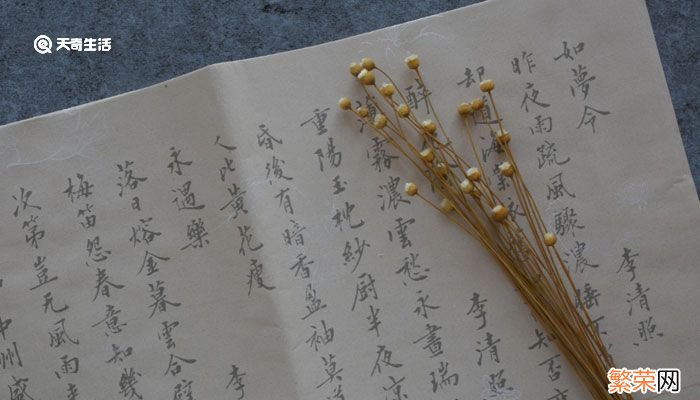 天奇生活
如夢令 李清照
昨夜雨疏風驟濃睡不
却道海棠依 知否
醉 李清照
薄霧濃雲愁永晝瑞
重陽玉枕紗厨半夜凉
昏後有暗香盈袖莫
人比黃花瘦
永遇樂 李
落日熔金暮雲合璧
梅笛怨春意知幾
次第豈无風雨
中州盛
繁荣网